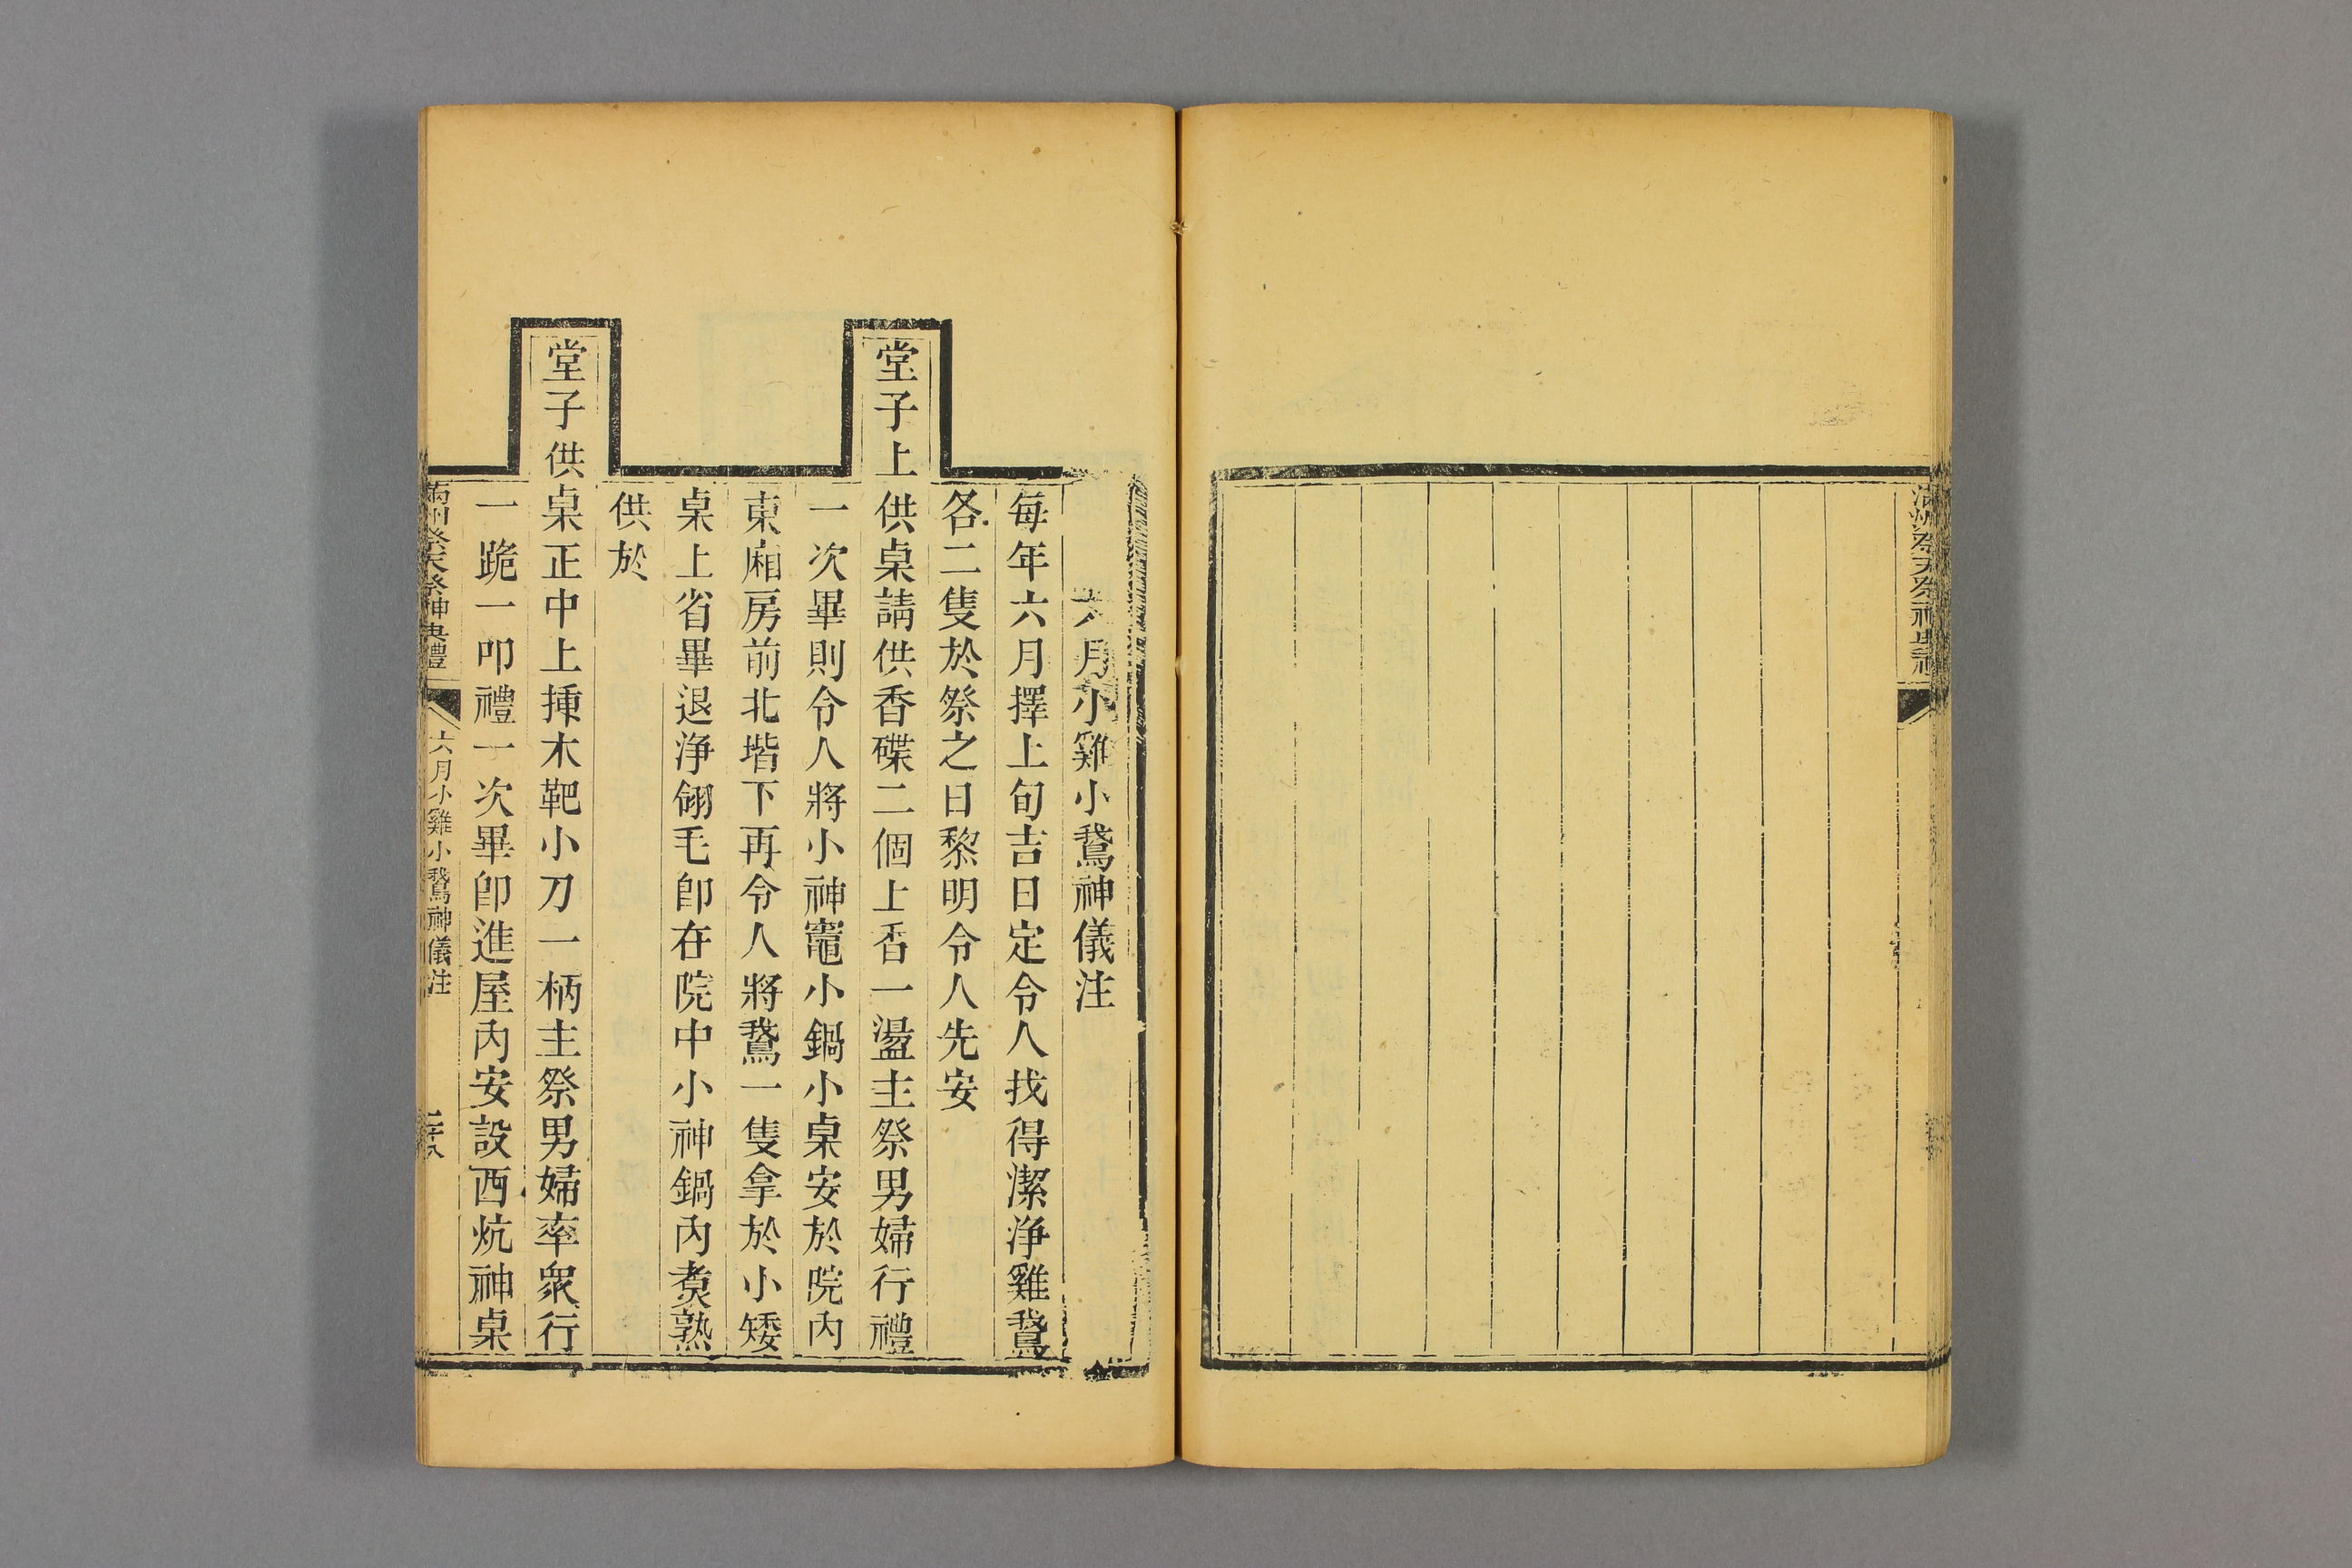 滿洲祭天祭神典禮
六月小雞小鵞神儀注
每年六月擇上旬吉日定令人找得潔淨雞鵞
各二隻於祭之日黎明令人先安
堂子上供桌請供香碟二個上香一盪主祭男婦行禮
一次畢則令人將小神竈小鍋小桌安於院內
東廂房前北堦下再令人將鵞一隻拿於小矮
桌上省畢退淨翎毛卽在院中小神鍋內煑熟
供於
堂子供桌正中上揷木靶小刀一柄主祭男婦率衆行
一跪一叩禮一次畢卽進屋內安設西炕神桌
滿洲祭天祭神典禮
六月小雞小鵞神儀注